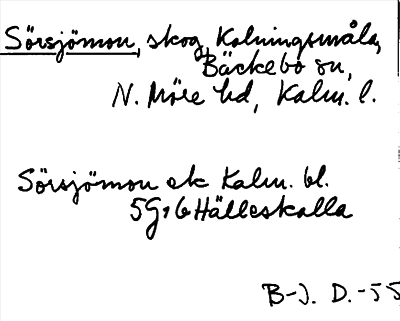 Sörsjömon, skog, Kolningsmåla,
Bäckebo sn,
N. Möre hd, Kalm. l.
Sörsjömon ek Kalm. bl.
5G, 6 Hälleskalla
B-J. D. -55